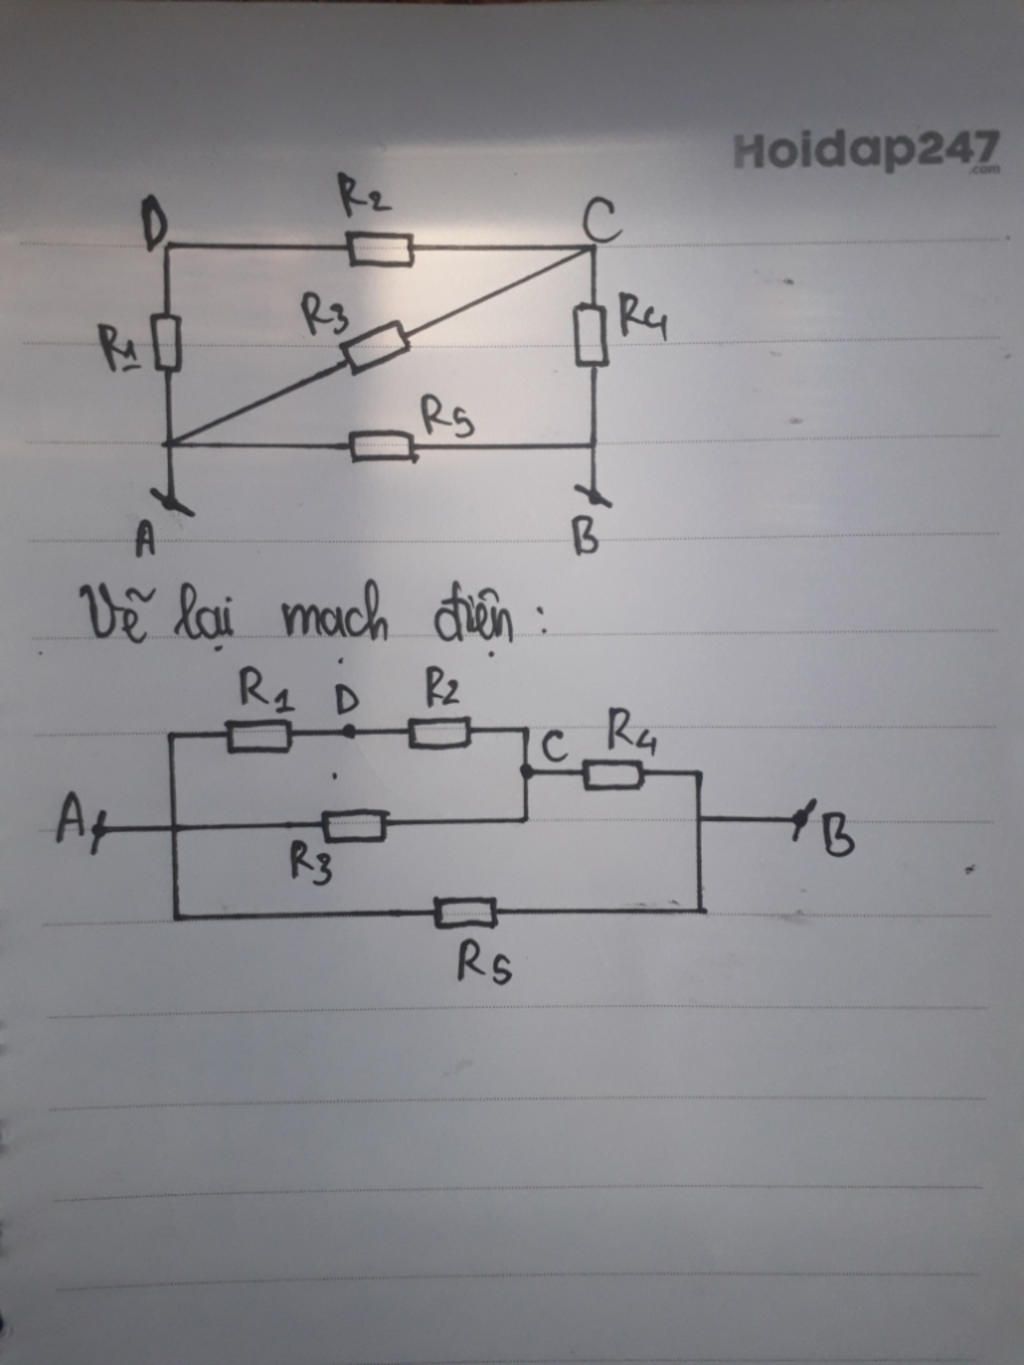 Hoidap247
.com
D R2 C
R1 R3 R4
R5
A B
Vẽ lại mạch điện :
R1 D R2
C R4
A B
R3
R5